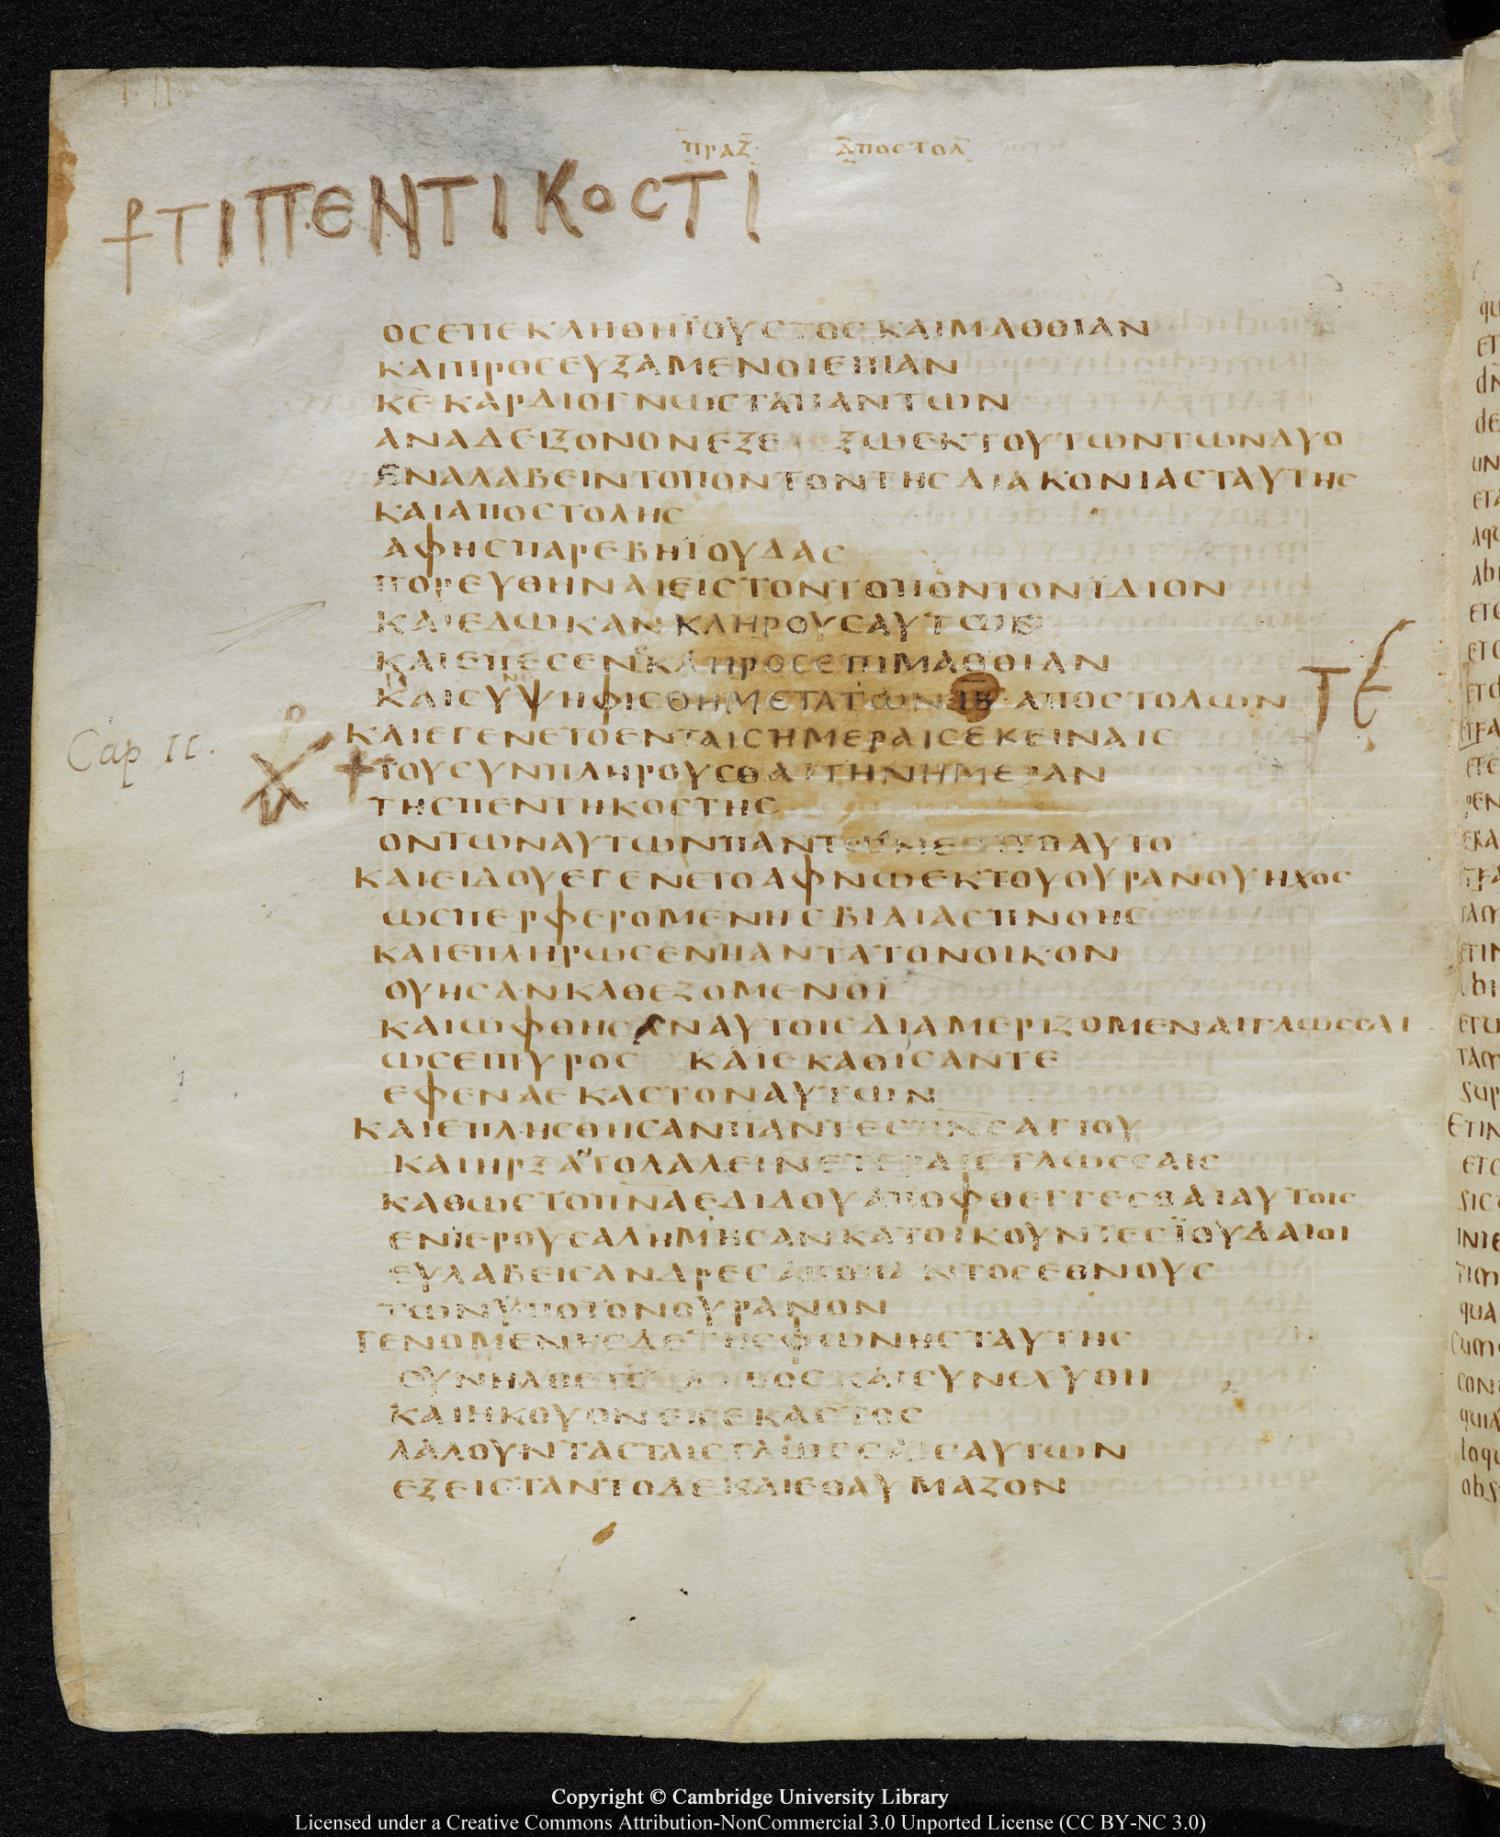 ΠΡΑΞ ΑΠΟΣΤΟΛ
ϯΤΙΠΕΝΤΙΚΟϹΤΙ
ΟϹΕΠΕΚΛΗΘΗΪΟΥϹΤΟϹ ΚΑΙΜΑΘΘΙΑΝ
ΚΑΙΠΡΟϹΕΥΞΑΜΕΝΟΙΕΙΠΑΝ
ΚΕ ΚΑΡΔΙΟΓΝΩϹΤΑΠΑΝΤΩΝ
ΑΝΑΔΕΙΞΟΝΟΝΕΞΕΛΕΞΩΕΚΤΟΥΤΩΝΤΩΝΔΥΟ
ΕΝΑΛΑΒΕΙΝΤΟΠΟΝΤΟΝΤΗϹΔΙΑΚΟΝΙΑϹΤΑΥΤΗϹ
ΚΑΙΑΠΟϹΤΟΛΗϹ
ΑΦΗϹΠΑΡΕΒΗΪΟΥΔΑϹ
ΠΟΡΕΥΘΗΝΑΙΕΙϹΤΟΝΤΟΠΟΝΤΟΝΪΔΙΟΝ
ΚΑΙΕΔΩΚΑΝΚΛΗΡΟΥϹΑΥΤΩΝ
ΚΑΙΕΠΕϹΕΝΚΛΗΡΟϹΕΠΙΜΑΘΘΙΑΝ
ΚΑΙϹΥΨΗΦΙϹΘΗΜΕΤΑΤΩΝΙΒ ΑΠΟϹΤΟΛΩΝ ΤΕ
ΚΑΙΕΓΕΝΕΤΟΕΝΤΑΙϹΗΜΕΡΑΙϹΕΚΕΙΝΑΙϹ
Cap II. ΤΟΥϹΥΝΠΛΗΡΟΥϹΘΑΙΤΗΝΗΜΕΡΑΝ
ΤΗϹΠΕΝΤΗΚΟϹΤΗϹ
ΟΝΤΩΝΑΥΤΩΝΠΑΝΤΩΝΕΠΙΤΟΑΥΤΟ
ΚΑΙΕΙΔΟΥΕΓΕΝΕΤΟΑΦΝΩΕΚΤΟΥΟΥΡΑΝΟΥΗΧΟϹ
ΩϹΠΕΡΦΕΡΟΜΕΝΗϹΒΙΑΙΑϹΠΝΟΗϹ
ΚΑΙΕΠΛΗΡΩϹΕΝΠΑΝΤΑΤΟΝΟΙΚΟΝ
ΟΥΗϹΑΝΚΑΘΕΖΟΜΕΝΟΙ
ΚΑΙΩΦΘΗϹΑΝΑΥΤΟΙϹΔΙΑΜΕΡΙΖΟΜΕΝΑΙΓΛΩϹϹΑΙ
ΩϹΕΙΠΥΡΟϹ ΚΑΙΕΚΑΘΙϹΑΝΤΕ
ΕΦΕΝΑΕΚΑϹΤΟΝΑΥΤΩΝ
ΚΑΙΕΠΛΗϹΘΗϹΑΝΠΑΝΤΕϹΠΝϹΑΓΙΟΥ
ΚΑΙΗΡΞΑΝΤΟΛΑΛΕΙΝΕΤΕΡΑΙϹΓΛΩϹϹΑΙϹ
ΚΑΘΩϹΤΟΠΝΑΕΔΙΔΟΥΑΠΟΦΘΕΓΓΕϹΘΑΙΑΥΤΟΙϹ
ΕΝΪΕΡΟΥϹΑΛΗΜΗϹΑΝΚΑΤΟΙΚΟΥΝΤΕϹΪΟΥΔΑΙΟΙ
ΕΥΛΑΒΕΙϹΑΝΔΡΕϹΑΠΟΠΑΝΤΟϹΕΘΝΟΥϹ
ΤΩΝΫΠΟΤΟΝΟΥΡΑΝΟΝ
ΓΕΝΟΜΕΝΗϹΔΕΤΗϹΦΩΝΗϹΤΑΥΤΗϹ
ϹΥΝΗΛΘΕΤΟΠΛΗΘΟϹΚΑΙϹΥΝΕΧΥΘΗ
ΚΑΙΗΚΟΥΟΝΕΙϹΕΚΑϹΤΟϹ
ΛΑΛΟΥΝΤΑϹΤΑΙϹΓΛΩϹϹΑΙϹΑΥΤΩΝ
ΕΞΕΙϹΤΑΝΤΟΔΕΚΑΙΕΘΑΥΜΑΖΟΝ
Copyright © Cambridge University Library
Licensed under a Creative Commons Attribution-NonCommercial 3.0 Unported License (CC BY-NC 3.0)